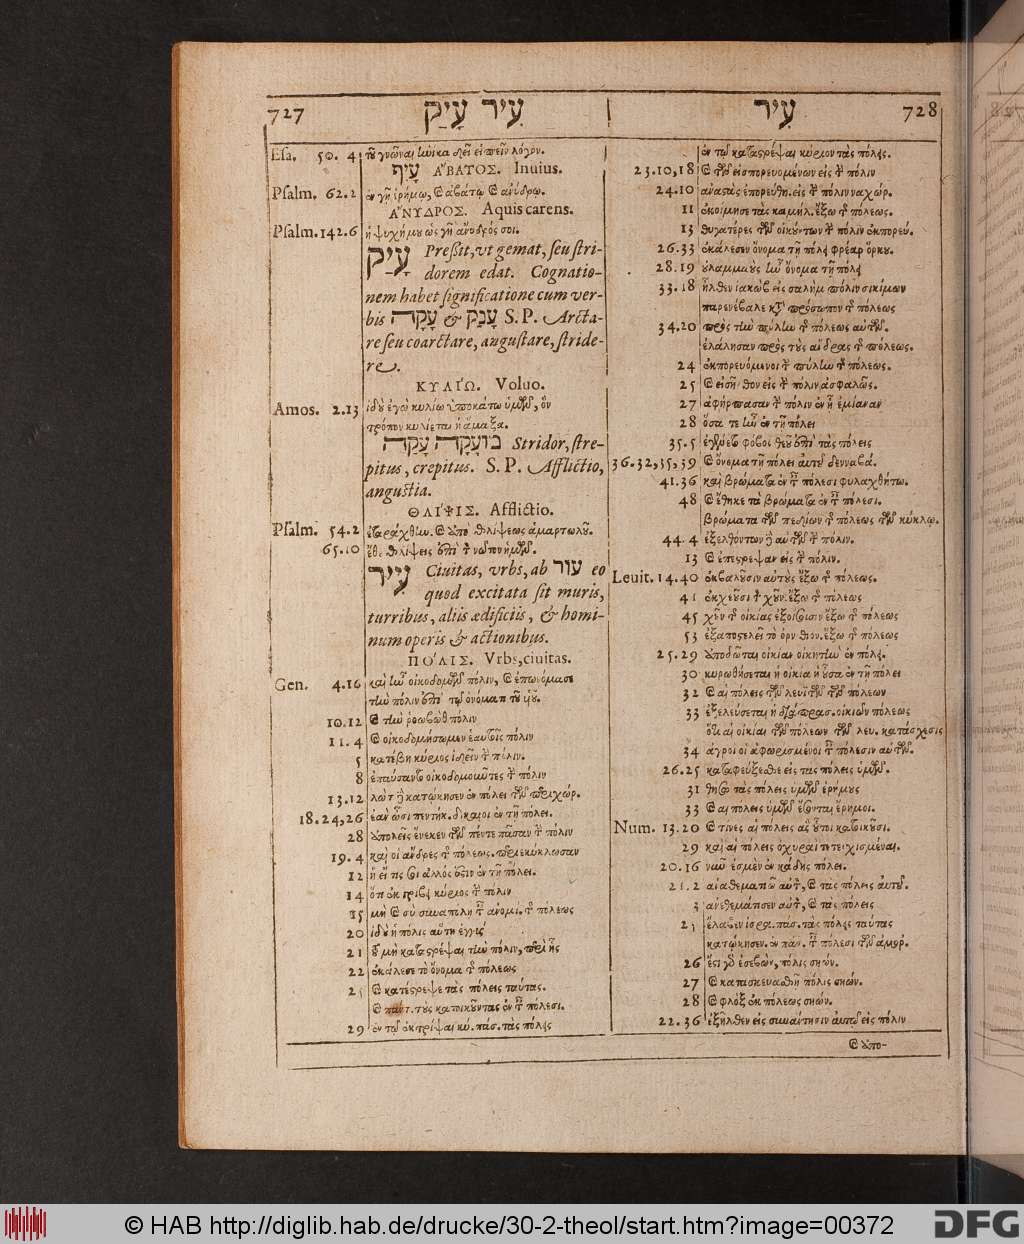 727 עִיר עָיַק
עִיר 728
Esa. 50. 4 τοῦ γνῶναι ἡνίκα δεῖ εἰπεῖν λόγον.
עָיֵף ἌΒΑΤΟΣ. Inuius.
Psalm. 62.2 ἐν γῇ ἐρήμῳ, καὶ ἀβάτῳ καὶ ἀνύδρῳ.
ἌΝΥΔΡΟΣ. Aquis carens.
Psalm. 142.6 ἡ ψυχή μου ὡς γῆ ἄνυδρός σοι.
עָיַק Preßit, vt gemat, seu stri-
dorem edat. Cognatio-
nem habet significatione cum ver-
bis עָקָה & עָנַק S.P. Arcta-
re seu coarctare, angustare, stride-
re.
ΚΥΛΙΏ. Voluo.
Amos. 2.13 ἰδοὺ ἐγὼ κυλίω ὑποκάτω ὑμῶν, ὃν
τρόπον κυλίεται ἡ ἅμαξα.
מוּעָקָה עָקָה Stridor, stre-
pitus, crepitus. S.P. Afflictio,
angustia.
ΘΛΊΨΙΣ. Afflictio.
Psalm. 54.2 ἐταράχθην. καὶ ἀπὸ θλίψεως ἁμαρτωλοῦ.
65.10 ἔθου θλίψεις ἐπὶ τὸν νῶτον ἡμῶν.
עִיר Ciuitas, vrbs, ab עוּר eo
quod excitata sit muris,
turribus, aliis ædificiis, & homi-
num operis & actionibus.
ΠΌΛΙΣ. Vrbs, ciuitas.
Gen. 4.16 καὶ ἦν οἰκοδομῶν πόλιν, καὶ ἐπωνόμασε
τὴν πόλιν ἐπὶ τῷ ὀνόματι τοῦ υἱοῦ.
10.12 καὶ τὴν ῥοωβὼθ πόλιν
11.4 καὶ οἰκοδομήσωμεν ἑαυτοῖς πόλιν
5 κατέβη κύριος ἰδεῖν τὴν πόλιν.
8 ἐπαύσαντο οἰκοδομοῦντες τὴν πόλιν
13.12 λὼτ δὲ κατῴκησεν ἐν πόλει τῶν περιχώρ.
18.24,26 ἐὰν ὦσι πεντήκ. δίκαιοι ἐν τῇ πόλει.
28 ἀπολεῖς ἕνεκεν τῶν πέντε πᾶσαν τὴν πόλιν
19.4 καὶ οἱ ἄνδρες τῆς πόλεως. περιεκύκλωσαν
12 ἢ εἴ τίς σοι ἄλλός ἐστιν ἐν τῇ πόλει.
14 ὅτι ἐκτρίβει κύριος τὴν πόλιν
15 μὴ καὶ σὺ συναπόλῃ ταῖς ἀνομί. τῆς πόλεως
20 ἰδοὺ ἡ πόλις αὕτη ἐγγὺς
21 τοῦ μὴ καταστρέψαι τὴν πόλιν, περὶ ἧς
22 ἐκάλεσε τὸ ὄνομα τῆς πόλεως
25 καὶ κατέστρεψε τὰς πόλεις ταύτας.
καὶ πάντ. τοὺς κατοικοῦντας ἐν ταῖς πόλεσι.
29 ἐν τῷ ἐκτρίψαι κύ. πάσ. τὰς πόλεις
ἐν τῷ καταστρέψαι κύριον τὰς πόλεις.
23.10,18 καὶ τῶν εἰσπορευομένων εἰς τὴν πόλιν
24.10 ἀναστὰς ἐπορεύθη. εἰς τὴν πόλιν ναχώρ.
11 ἐκοίμησε τὰς καμήλ. ἔξω τῆς πόλεως.
13 θυγατέρες τῶν οἰκούντων τὴν πόλιν ἐκπορεύ.
26.33 ἐκάλεσεν ὄνομα τῇ πόλει φρέαρ ὅρκου.
28.19 οὐλαμμαοὺς ἦν ὄνομα τῇ πόλει
33.18 ἦλθεν ἰακὼβ εἰς σαλὴμ πόλιν σικίμων
παρενέβαλε κατὰ πρόσωπον τῆς πόλεως
34.20 πρὸς τὴν πύλην τῆς πόλεως αὐτῶν.
ἐλάλησαν πρὸς τοὺς ἄνδρας τῆς πόλεως.
24 ἐκπορευόμενοι τὴν πύλην τῆς πόλεως.
25 καὶ εἰσῆλθον εἰς τὴν πόλιν ἀσφαλῶς.
27 διήρπασαν τὴν πόλιν ἐν ᾗ ἐμίαναν
28 ὅσα τε ἦν ἐν τῇ πόλει
35.5 ἐγένετο φόβος θεοῦ ἐπὶ τὰς πόλεις
36.32,35,39 καὶ ὄνομα τῇ πόλει αὐτοῦ δενναβά.
41.36 καὶ βρώματα ἐν ταῖς πόλεσι φυλαχθήτω.
48 καὶ ἔθηκε τὰ βρώματα ἐν ταῖς πόλεσι.
βρώματα τῶν πεδίων τῆς πόλεως τῶν κύκλῳ.
44.4 ἐξελθόντων δὲ αὐτῶν τὴν πόλιν.
13 καὶ ἐπέστρεψαν εἰς τὴν πόλιν.
Leuit. 14.40 ἐκβαλοῦσιν αὐτοὺς ἔξω τῆς πόλεως.
41 ἐκχεοῦσι τὸν χοῦν. ἔξω τῆς πόλεως
45 χοῦν τῆς οἰκίας ἐξοίσουσιν ἔξω τῆς πόλεως
53 ἐξαποστελεῖ τὸ ὀρνίθιον. ἔξω τῆς πόλεως
25.29 ἀποδῶται οἰκίαν οἰκητὴν ἐν πόλει.
30 κυρωθήσεται ἡ οἰκία ἡ οὖσα ἐν τῇ πόλει
32 καὶ αἱ πόλεις τῶν λευιτῶν τῶν πόλεων
33 ἐξελεύσεται ἡ διάπρασ. οἰκιῶν πόλεως
ὅτι αἱ οἰκίαι τῶν πόλεων τῶν λευ. κατάσχεσις
34 ἀγροὶ οἱ ἀφωρισμένοι ταῖς πόλεσιν αὐτῶν.
26.25 καταφεύξεσθε εἰς τὰς πόλεις ὑμῶν.
31 θήσω τὰς πόλεις ὑμῶν ἐρήμους
33 καὶ αἱ πόλεις ὑμῶν ἔσονται ἔρημοι.
Num. 13.20 καὶ τίνες αἱ πόλεις ἃς οὗτοι κατοικοῦσι.
29 καὶ αἱ πόλεις ὀχυραὶ τετειχισμέναι.
20.16 νῦν ἐσμὲν ἐν κάδης πόλει.
21.2 ἀναθεματιῶ αὐτὸν, καὶ τὰς πόλεις αὐτοῦ.
3 ἀνεθεμάτισεν αὐτὸν, καὶ τὰς πόλεις
25 ἔλαβεν ἰσρα. πάσ. τὰς πόλεις ταύτας
κατῴκησεν. ἐν πάσ. ταῖς πόλεσι τῶν ἀμορ.
26 ἔστι γὰρ ἐσεβὼν, πόλις σηών.
27 καὶ κατασκευασθῇ πόλις σηών.
28 καὶ φλὸξ ἐκ πόλεως σηών.
22.36 ἐξῆλθεν εἰς συνάντησιν αὐτῷ εἰς πόλιν
καὶ ἀπο-
© HAB http://diglib.hab.de/drucke/30-2-theol/start.htm?image=00372
DFG